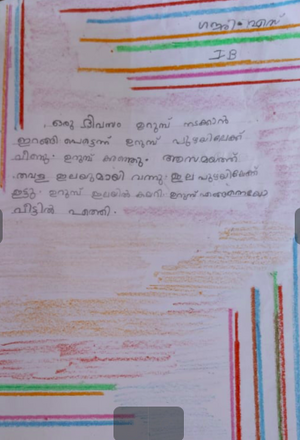 I B
ഒരു ദിവസം ഉറുമ്പ് നടക്കാൻ
ഇറങ്ങി പെട്ടന്ന് ഉറുമ്പ് പുഴയിലേക്ക്
വീണു. ഉറുമ്പ് കരഞ്ഞു. അസമയത്ത്
തവള ഇലയുമായി വന്നു. ഇല പുഴയിലേക്ക്
ഇട്ടു. ഉറുമ്പ് ഇലയിൽ കയറി. ഉറുമ്പ്
വീട്ടിൽ എത്തി.